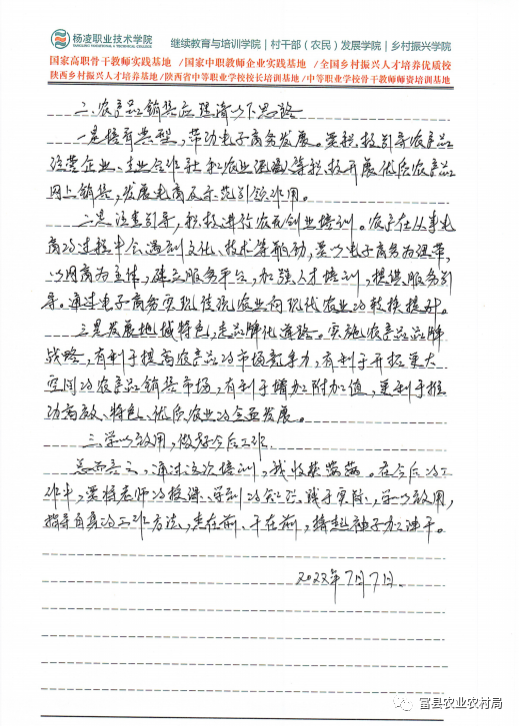 杨凌职业技术学院
YANGLING VOCATIONAL & TECHNICAL COLLEGE
继续教育与培训学院 | 村干部（农民）发展学院 | 乡村振兴学院
国家高职骨干教师实践基地 /国家中职教师企业实践基地 /全国乡村振兴人才培养优质校
陕西乡村振兴人才培养基地/陕西省中等职业学校校长培训基地/中等职业学校骨干教师师资培训基地
二、农产品销售应理清以下思路
一是培育典型，带动电子商务发展。要积极引导农产品
经营企业、专业合作社和农业强镇等积极开展优质农产品
网上销售，发展电商及示范引领作用。
二是注重引导，积极进行农民创业培训。农产在从事电
商的过程中会遇到文化、技术等瓶颈，要以电子商务为纽带，
以网商为主体，建立服务平台，加强人才培训，提供服务引
导。通过电子商务实现传统农业向现代农业的转换提升。
三是发展地域特色，走品牌化道路。实施农产品品牌
战略，有利于提高农产品的市场竞争力，有利于开拓更大
空间的农产品销售市场，有利于增加附加值，更利于推
动高效、特色、优质农业的全面发展。
三、学以致用，做好今后工作
总而言之，通过这次培训，我收获满满。在今后的工
作中，要将老师的授课、学到的知识、践于实际，学以致用，
指导自身的工作方法，走在前、干在前，撸起袖子加油干。
2022年7月7日.
富县农业农村局